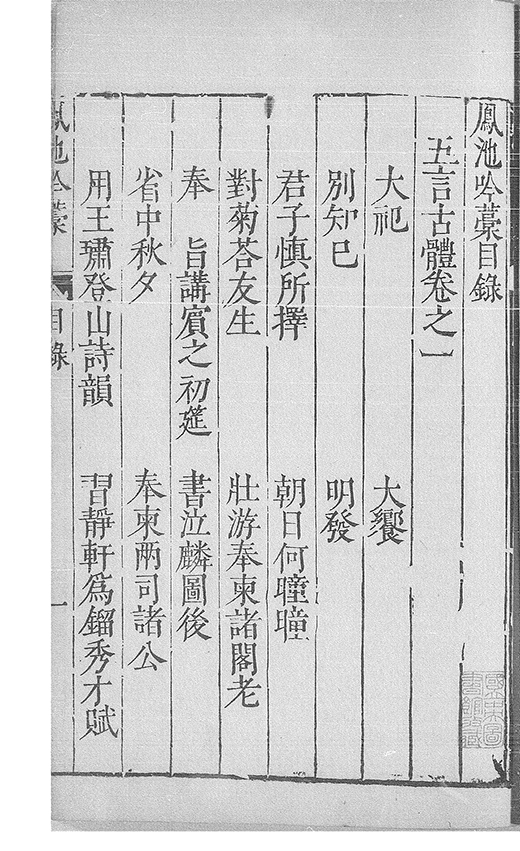 鳳池吟藁目錄
五言古體卷之一
大祀　大饗
別知已　明發
君子慎所擇　朝日何曈曈
對菊荅友生　壯游奉柬諸閣老
奉　旨講賔之初筵　書泣麟圖後
省中秋夕　奉柬兩司諸公
用王璛登山詩韻　習靜軒爲鎦秀才賦
鳳池吟藁　目錄　一